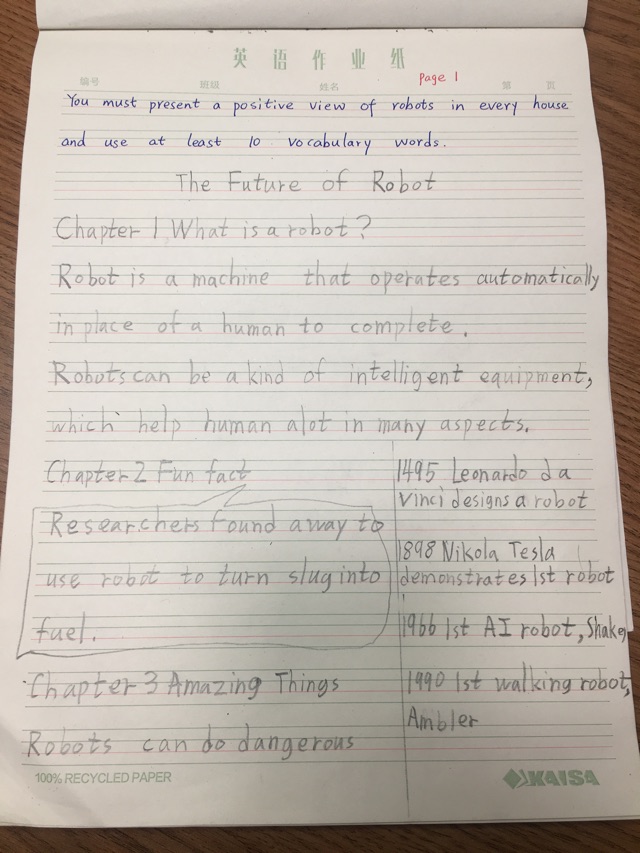 英语作业纸
编号 班级 姓名 第 页
Page 1
You must present a positive view of robots in every house
and use at least 10 vocabulary words.
The Future of Robot
Chapter 1 What is a robot?
Robot is a machine that operates automatically
in place of a human to complete.
Robots can be a kind of intelligent equipment,
which help human alot in many aspects.
Chapter 2 Fun fact
Researchers found a way to
use robot to turn slug into
fuel.
Chapter 3 Amazing Things
Robots can do dangerous
1495 Leonardo da
Vinci designs a robot
1898 Nikola Tesla
demonstrates 1st robot
1966 1st AI robot, Shakey
1990 1st walking robot,
Ambler
100% RECYCLED PAPER
KAISA